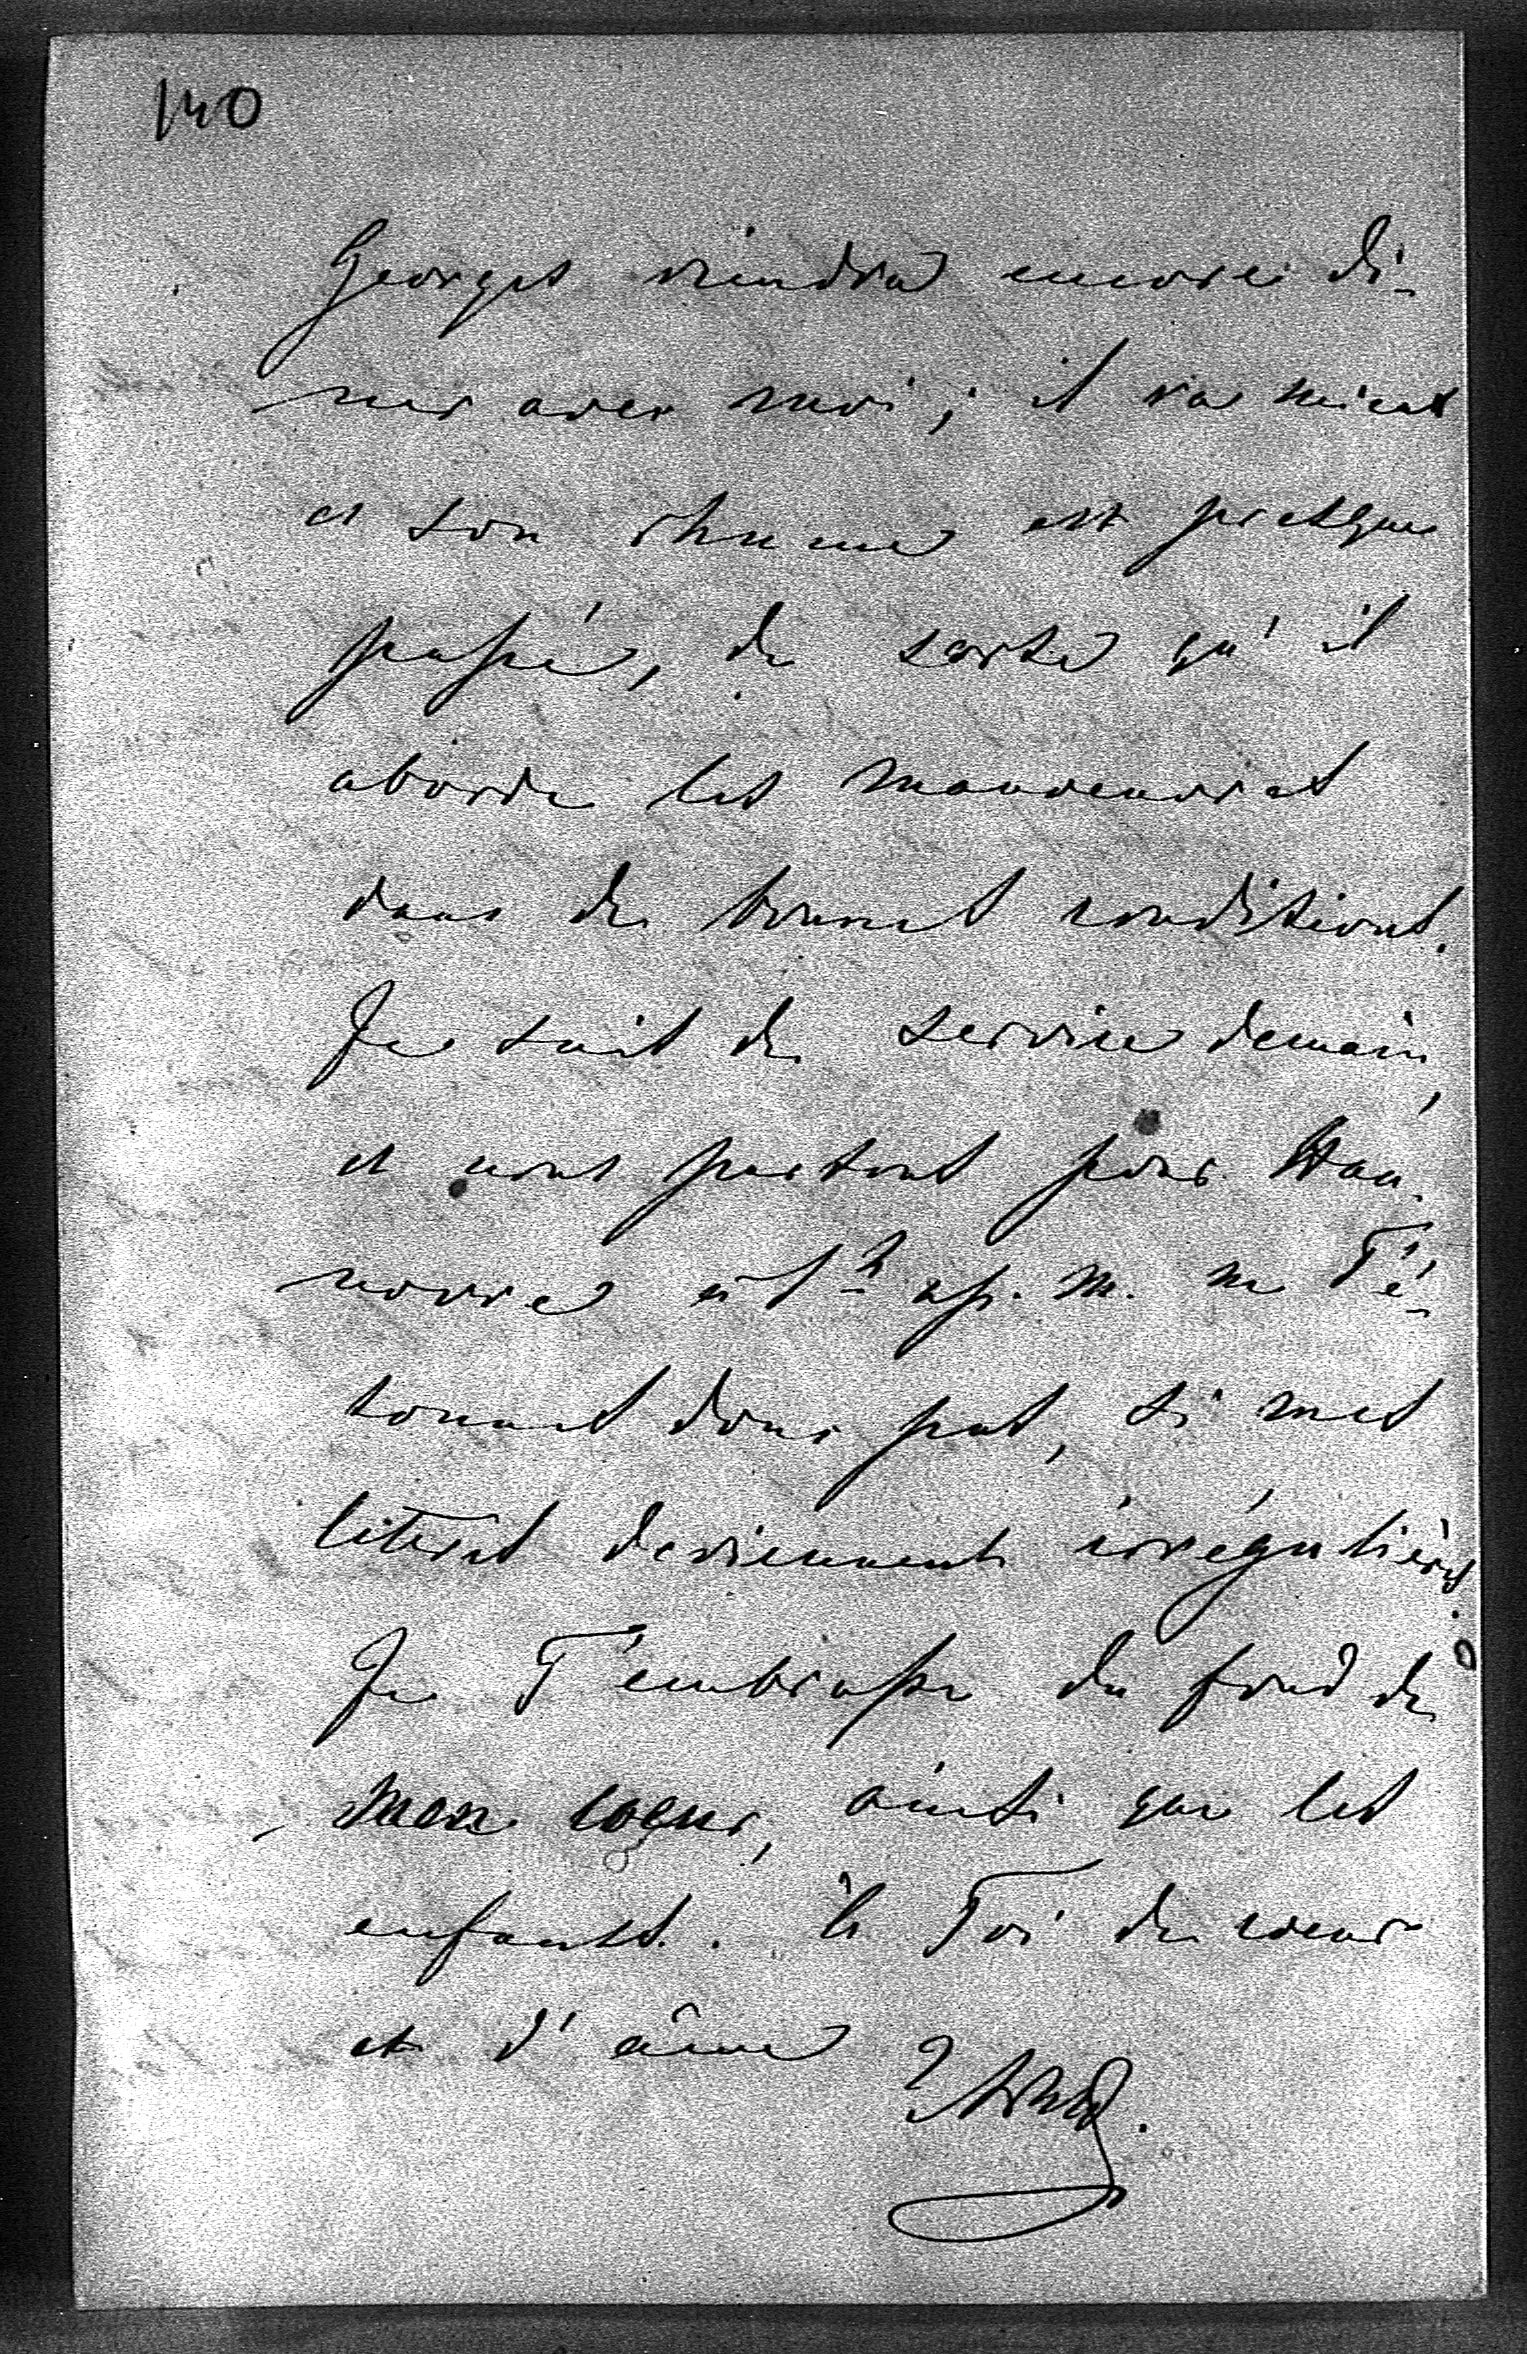 140
Georges viendra encore di-
ner avec moi ; il va mieux
et son rhume est presque
passé, de sorte qu'il
aborde les manoeuvres
dans de bonnes conditions.
Je suis de service demain,
et nous partons pour Han-
novre à 1h ap. m. ne T'é-
tonnes donc pas, si mes
lettres deviennent irrégulières.
Je T'embrasse du fond de
mon coeur, ainsi que les
enfants. à Toi de coeur
et d'âme